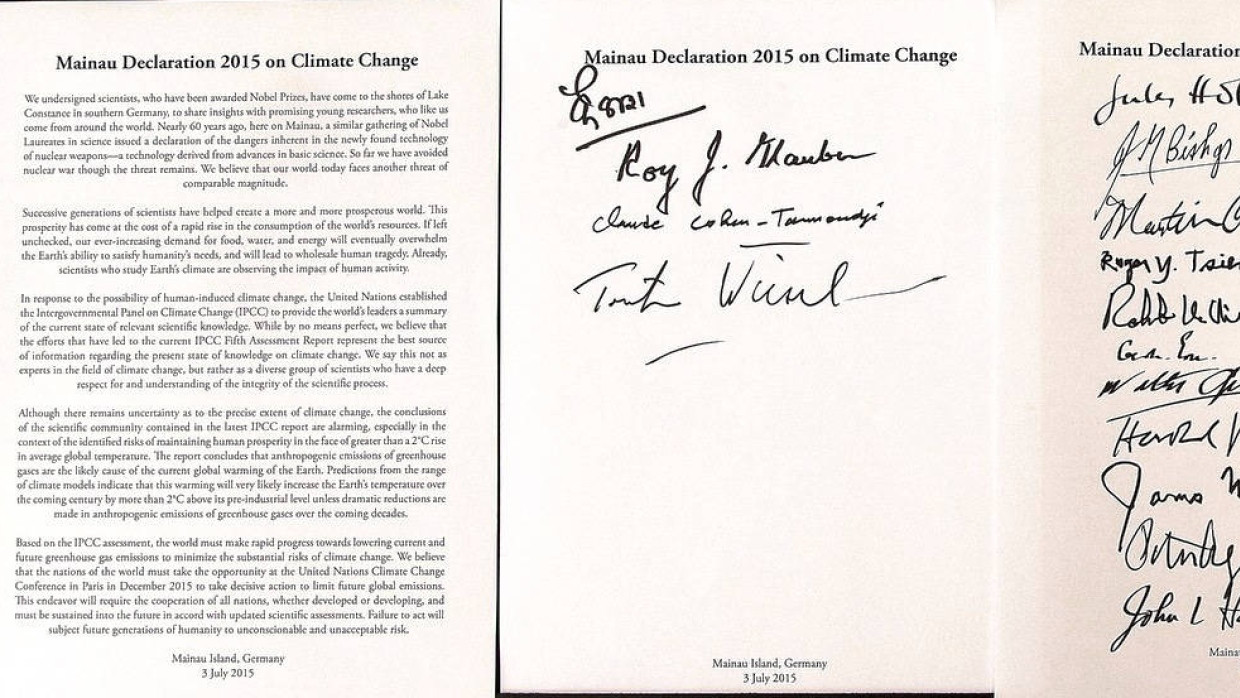 Mainau Declaration 2015 on Climate Change
We undersigned scientists, who have been awarded Nobel Prizes, have come to the shores of Lake
Constance in southern Germany, to share insights with promising young researchers, who like us
come from around the world. Nearly 60 years ago, here on Mainau, a similar gathering of Nobel
Laureates in science issued a declaration of the dangers inherent in the newly found technology
of nuclear weapons—a technology derived from advances in basic science. So far we have avoided
nuclear war though the threat remains. We believe that our world today faces another threat of
comparable magnitude.
Successive generations of scientists have helped create a more and more prosperous world. This
prosperity has come at the cost of a rapid rise in the consumption of the world's resources. If left
unchecked, our ever-increasing demand for food, water, and energy will eventually overwhelm
the Earth's ability to satisfy humanity's needs, and will lead to wholesale human tragedy. Already,
scientists who study Earth's climate are observing the impact of human activity.
In response to the possibility of human-induced climate change, the United Nations established
the Intergovernmental Panel on Climate Change (IPCC) to provide the world's leaders a summary
of the current state of relevant scientific knowledge. While by no means perfect, we believe that
the efforts that have led to the current IPCC Fifth Assessment Report represent the best source
of information regarding the present state of knowledge on climate change. We say this not as
experts in the field of climate change, but rather as a diverse group of scientists who have a deep
respect for and understanding of the integrity of the scientific process.
Although there remains uncertainty as to the precise extent of climate change, the conclusions
of the scientific community contained in the latest IPCC report are alarming, especially in the
context of the identified risks of maintaining human prosperity in the face of greater than a 2°C rise
in average global temperature. The report concludes that anthropogenic emissions of greenhouse
gases are the likely cause of the current global warming of the Earth. Predictions from the range
of climate models indicate that this warming will very likely increase the Earth's temperature over
the coming century by more than 2°C above its pre-industrial level unless dramatic reductions are
made in anthropogenic emissions of greenhouse gases over the coming decades.
Based on the IPCC assessment, the world must make rapid progress towards lowering current and
future greenhouse gas emissions to minimize the substantial risks of climate change. We believe
that the nations of the world must take the opportunity at the United Nations Climate Change
Conference in Paris in December 2015 to take decisive action to limit future global emissions.
This endeavor will require the cooperation of all nations, whether developed or developing, and
must be sustained into the future in accord with updated scientific assessments. Failure to act will
subject future generations of humanity to unconscionable and unacceptable risk.
Mainau Island, Germany
3 July 2015
Mainau Declaration 2015 on Climate Change
Roy J. Glauber
Claude Cohen-Tannoudji
Mainau Island, Germany
3 July 2015
Mainau Declaration
Jules
JM Bishop
Martin
Roger Y. Tsien
Harold
James
John L
Mainau